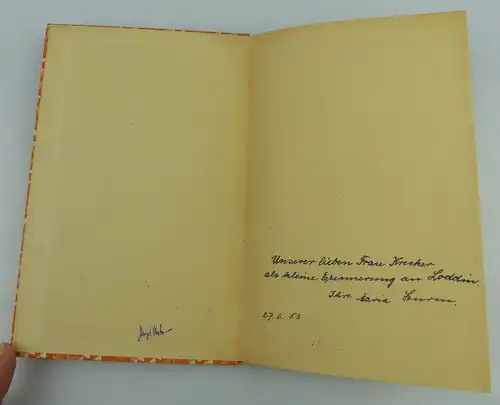 Unserer lieben Frau Krecker
als kleine Erinnerung an Loddin.
Ihre Maria Sturm.
27.6.53